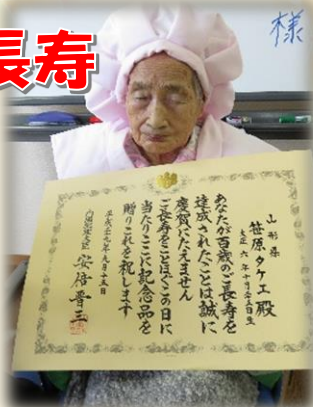 長寿
様
山形県
笹原タケエ殿
大正六年十月二十五日生
あなたが百歳のご長寿を
達成されたことは誠に
慶賀にたえません
ご長寿をことほぐこの日に
当たりここに記念品を
贈りこれを祝します
平成二十九年九月十五日
内閣総理大臣 安倍晋三